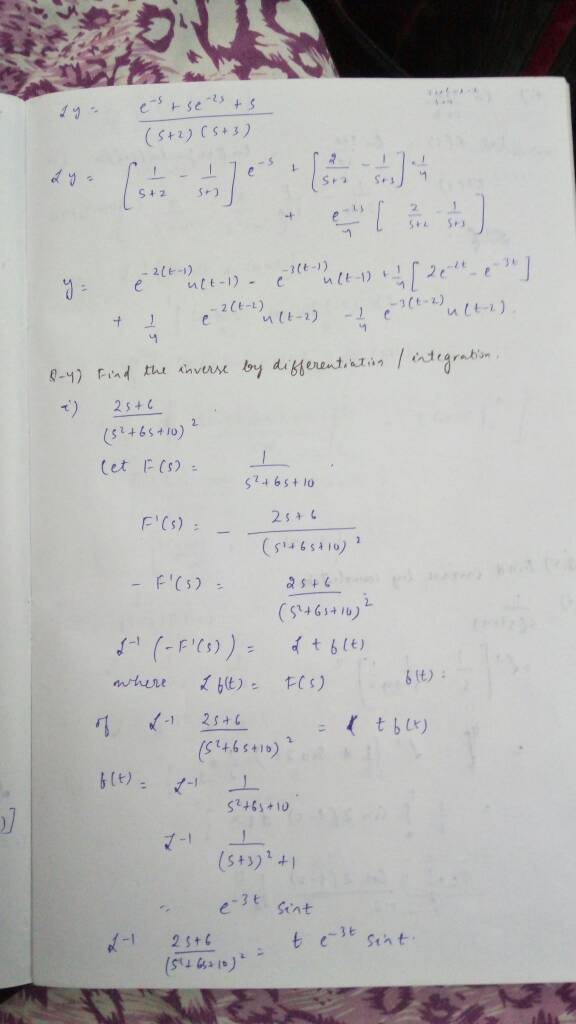 ℒy = (e^-s + se^-2s + s) / ((s+2)(s+3))
ℒy = [1/(s+2) - 1/(s+3)] e^-s + [2/(s+2) - 1/(s+3)] · 1/4
+ e^-2s/4 [2/(s+2) - 1/(s+3)]
y = e^-2(t-1) u(t-1) - e^-3(t-1) u(t-1) + 1/4 [2e^-2t - e^-3t]
+ 1/4 e^-2(t-2) u(t-2) - 1/4 e^-3(t-2) u(t-2).
Q-4) Find the inverse by differentiation / integration.
i) (2s+6) / (s²+6s+10)²
Let F(s) = 1 / (s²+6s+10)
F'(s) = - (2s+6) / (s²+6s+10)²
- F'(s) = (2s+6) / (s²+6s+10)²
ℒ-1 (-F'(s)) = ℒ t f(t)
where ℒ f(t) = F(s) f(t) =
of ℒ-1 (2s+6) / (s²+6s+10)² = t f(t)
f(t) = ℒ-1 1 / (s²+6s+10)
ℒ-1 1 / ((s+3)²+1)
∴ e^-3t sint
ℒ-1 (2s+6) / (s²+6s+10)² = t e^-3t sint.